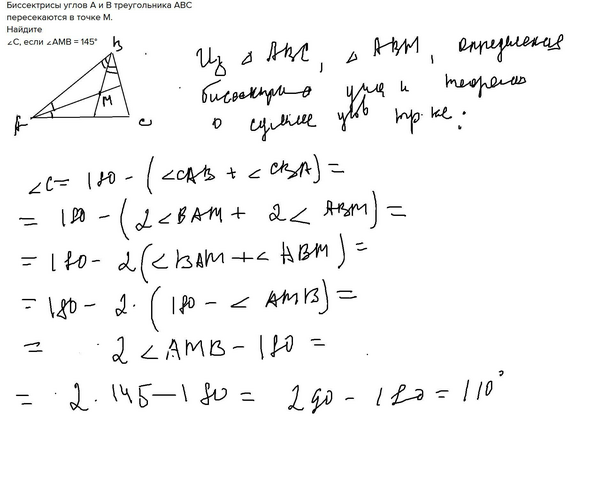 Биссектрисы углов А и В треугольника АВС
пересекаются в точке М.
Найдите
∠C, если ∠AMB = 145°
B
M
A
C
Из △ ABC, △ ABM, определения
биссектрис угла и теоремы
о сумме углов тр-ке:
∠C = 180 - (∠CAB + ∠CBA) =
= 180 - (2∠BAM + 2∠ABM) =
= 180 - 2(∠BAM + ∠ABM) =
= 180 - 2·(180 - ∠AMB) =
= 2∠AMB - 180 =
= 2·145 - 180 = 290 - 180 = 110°